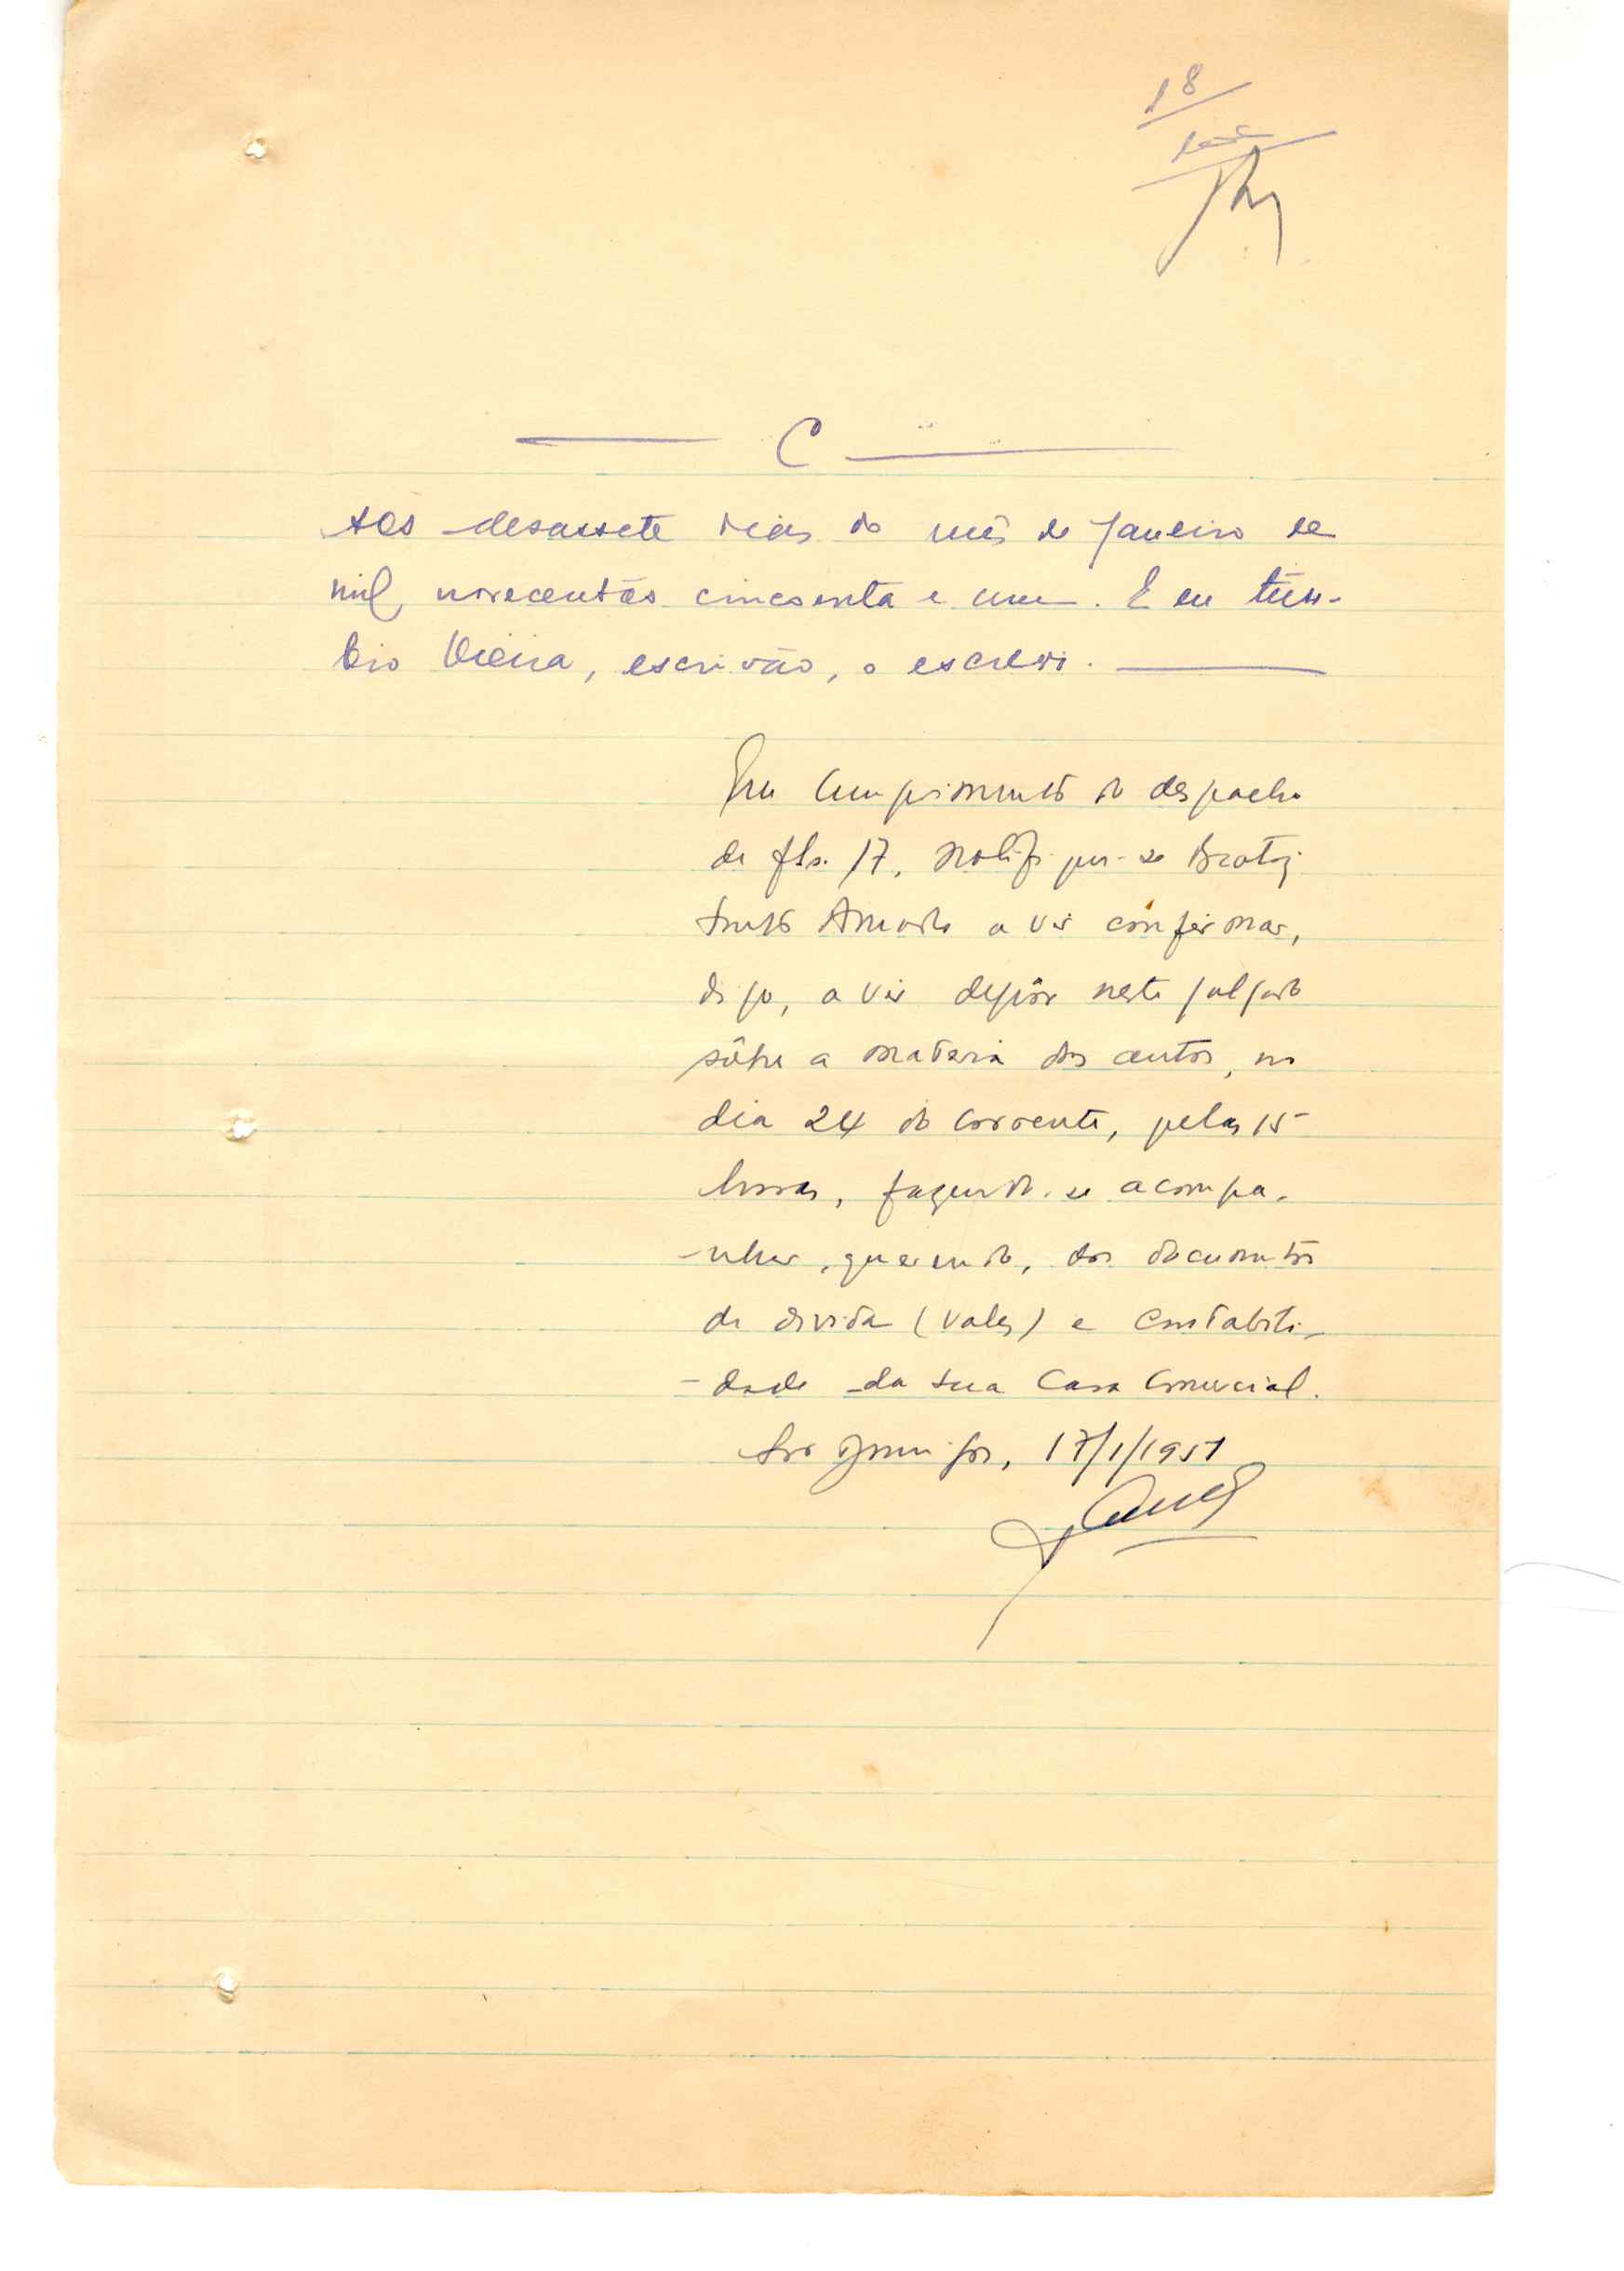 18
C
Aos desassete dias do mês de Janeiro de
mil novecentos cincoenta e um. E eu
Vieira, escrivão, o escrevi.
Em cumprimento do despacho
de fls. 17, notifique-se
a vir confirmar,
digo, a vir depôr neste julgado
sôbre a materia dos autos, no
dia 24 do corrente, pelas 15
horas, fazendo-se acompa-
-nhar, querendo, dos documentos
de divida (vales) e contabili-
-dade da sua Casa Comercial.
São Domingos, 17/1/1951